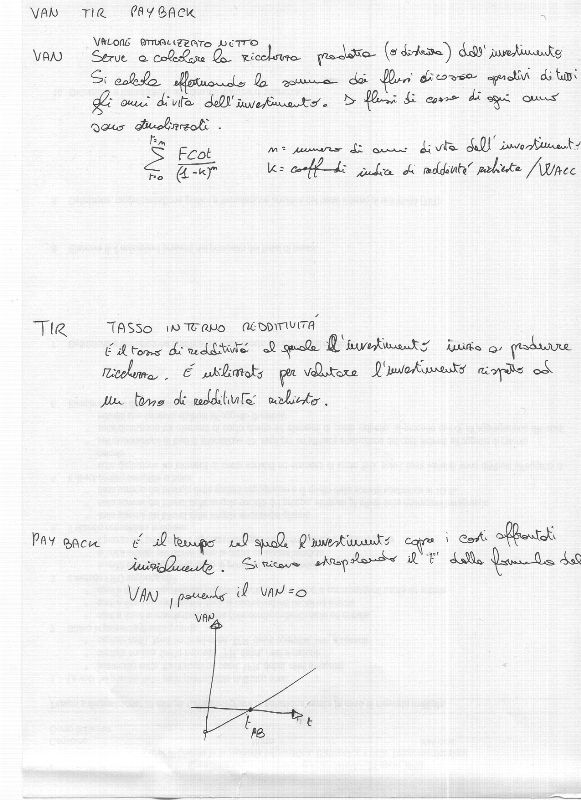 VAN TIR PAYBACK
VALORE ATTUALIZZATO NETTO
VAN Serve a calcolare la ricchezza prodotta (o distrutta) dall'investimento
Si calcola effettuando la somma dei flussi di cassa operativi di tutti
gli anni di vita dell'investimento. I flussi di cassa di ogni anno
sono attualizzati.
t=n
∑ FCOt / (1-k)^n n= numero di anni di vita dell'investimento
t=0 k= coeff. di indice di redditività richiesta /WACC
TIR TASSO INTERNO REDDITIVITÁ
É il tasso di redditivitá al quale l'investimento inizia a produrre
ricchezza. É utilizzato per valutare l'investimento rispetto ad
un tasso di redditivitá richiesto.
PAY BACK É il tempo nel quale l'investimento copre i costi affrontati
inizialmente. Si ricava estrapolando il "t" dalla formula del
VAN, ponendo il VAN=0
VAN
t
t PB